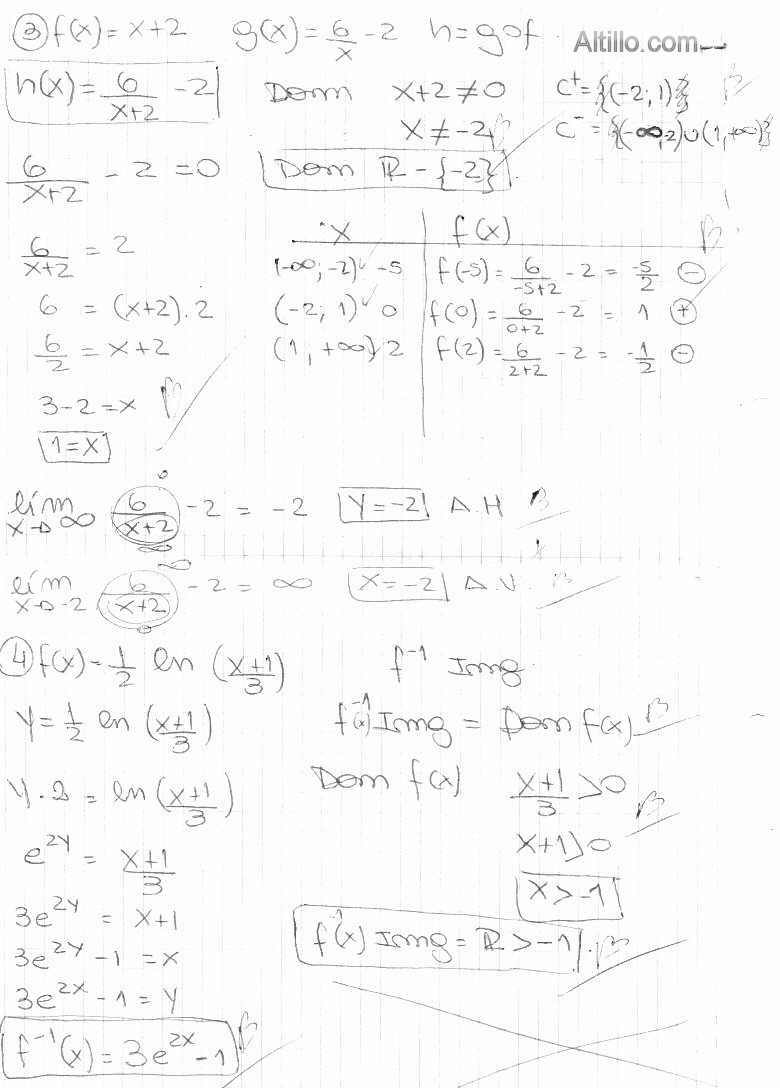 ③ f(x) = x+2   g(x) = 6/x - 2   h = g∘f.   Altillo.com
h(x) = 6/(x+2) - 2   Dom   x+2 ≠ 0   C⁺ = {(-2; 1)}
x ≠ -2   C⁻ = {(-∞,-2)∪(1,+∞)}
6/(x+2) - 2 = 0   Dom ℝ - {-2}.
x | f(x)
6/(x+2) = 2   (-∞; -2) -5 | f(-5) = 6/(-5+2) - 2 = -5/2 ⊖
6 = (x+2).2   (-2; 1) 0 | f(0) = 6/(0+2) - 2 = 1 ⊕
6/2 = x+2   (1, +∞) 2 | f(2) = 6/(2+2) - 2 = -1/2 ⊖
3-2 = x   B
1 = x
0
lím x→∞ 6/(x+2) - 2 = -2   Y = -2   A.H   B
∞
∞
lím x→-2 6/(x+2) - 2 = ∞   X = -2   A.V.   B
0
④ f(x) - 1/2 ln (x+1/3)   f⁻¹ Img.
Y = 1/2 ln (x+1/3)   f⁻¹(x) Img = Dom f(x)   B
Y.2 = ln (x+1/3)   Dom f(x)   x+1/3 > 0   B
e^2Y = x+1/3   x+1 > 0
3e^2Y = x+1   x > -1
3e^2Y - 1 = x   f⁻¹(x) Img = ℝ > -1.   B
3e^2x - 1 = Y
f⁻¹(x) = 3e^2x - 1   B